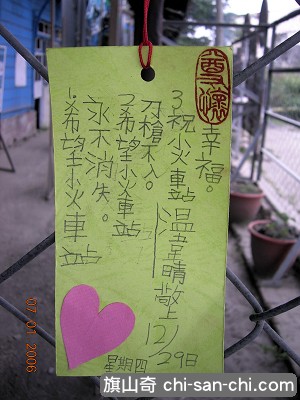 1.希望小火車站
永不消失。
2.希望小火車站
刀槍不入。
3.祝小火車站
幸福。
溫韋晴敬
12/29日
星期四
07 01 2006
旗山奇 chi-san-chi.com